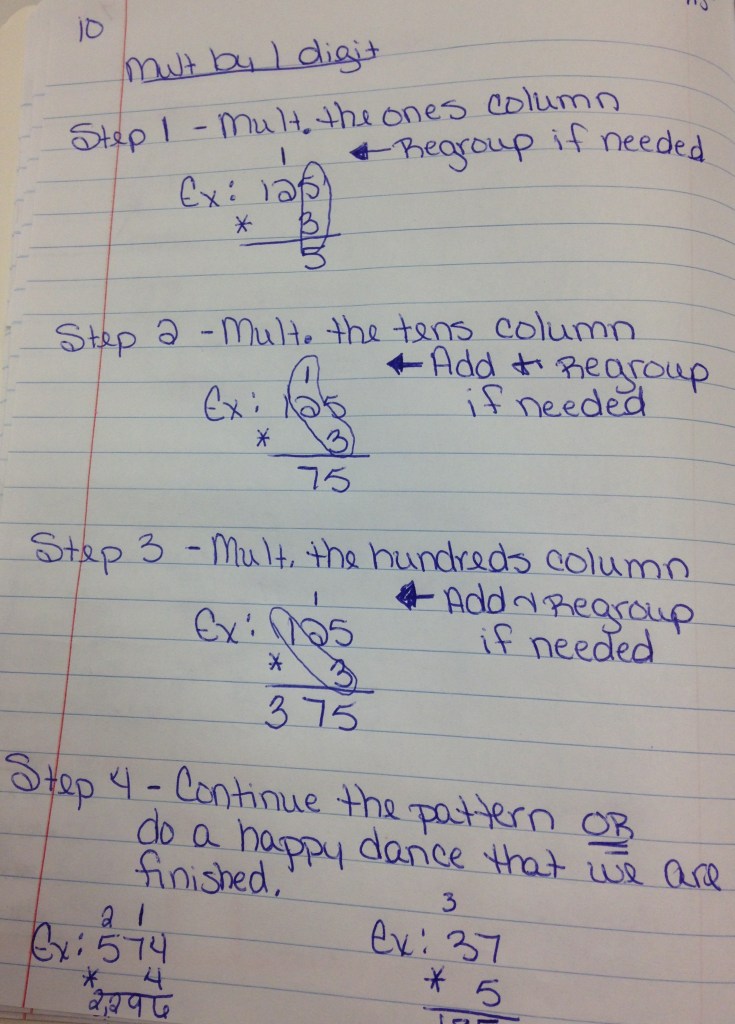 10
Mult by 1 digit
Step 1 - Mult. the ones column
1 ← Regroup if needed
Ex: 125
* 3
5
Step 2 - Mult. the tens column
1 ← Add + Regroup
Ex: 125 if needed
* 3
75
Step 3 - Mult. the hundreds column
1 ← Add + Regroup
Ex: 125 if needed
* 3
375
Step 4 - Continue the pattern OR
do a happy dance that we are
finished.
2 1 3
Ex: 574 Ex: 37
* 4 * 5
2,296